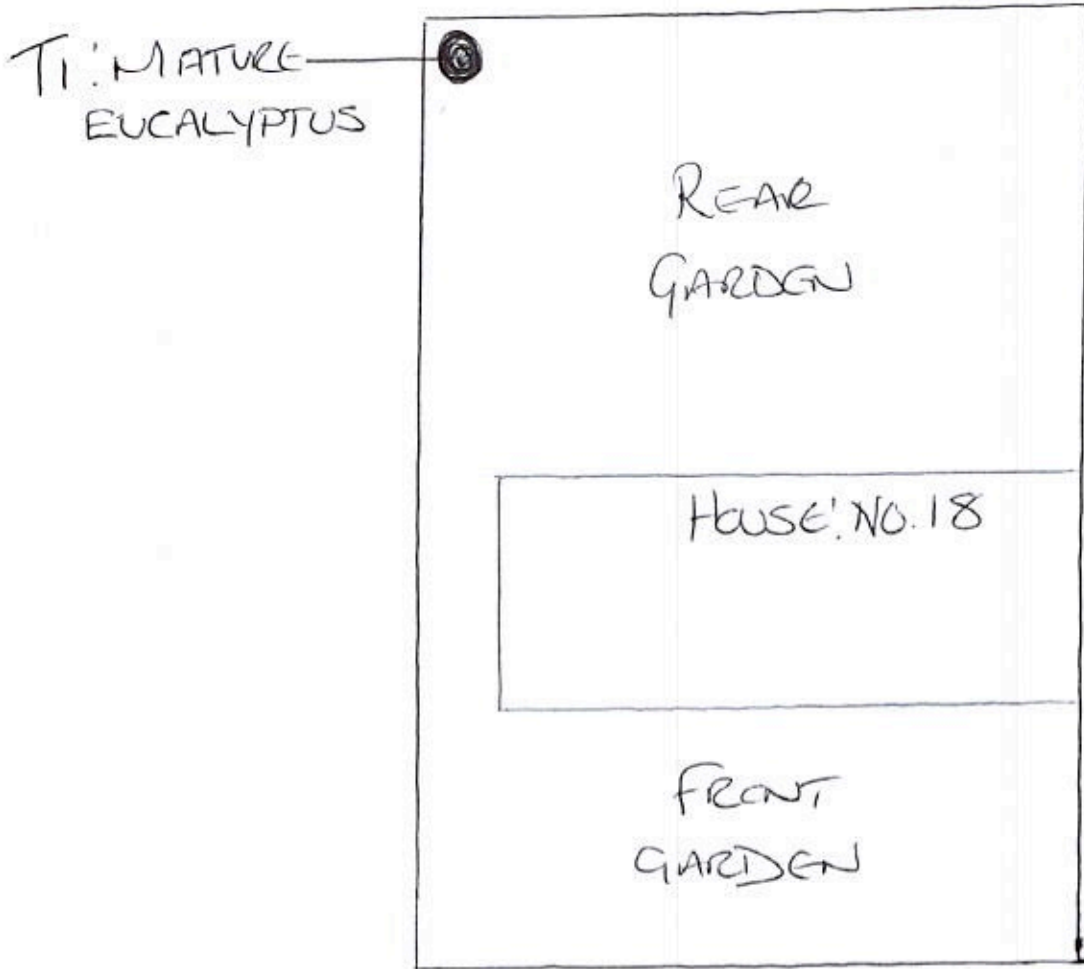 T1: MATURE
EUCALYPTUS
REAR
GARDEN
HOUSE: NO. 18
FRONT
GARDEN